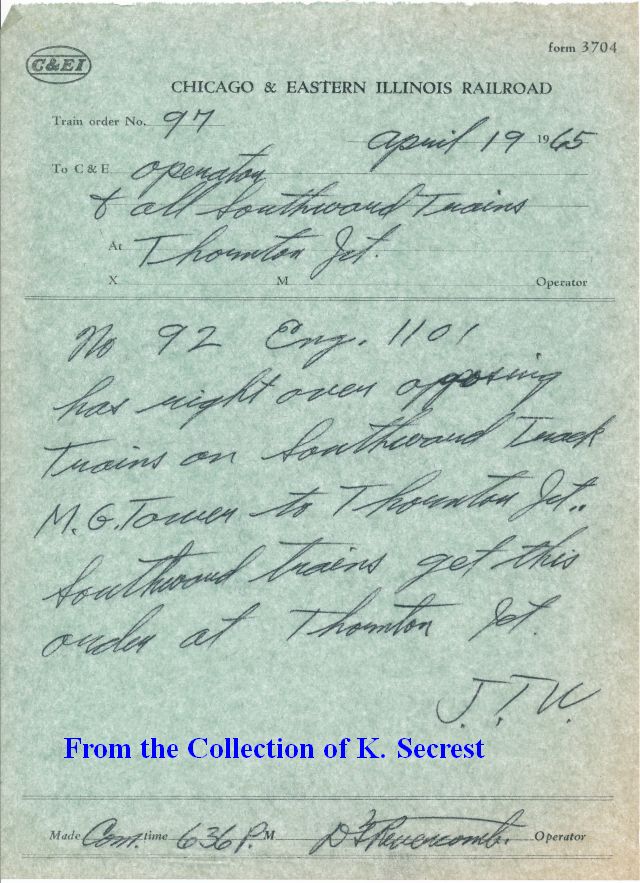 C&EI
form 3704
CHICAGO & EASTERN ILLINOIS RAILROAD
Train order No. 97
April 19 1965
To C & E operator
& all Southward Trains
At Thornton Jct.
X M Operator
No 92 Eng. 1101
has right over opposing
Trains on Southward Track
M.G. Tower to Thornton Jct..
Southward trains get this
order at Thornton Jct.
J.T.W.
From the Collection of K. Secrest
Made Com. time 636 P. M D F Revercomb. Operator